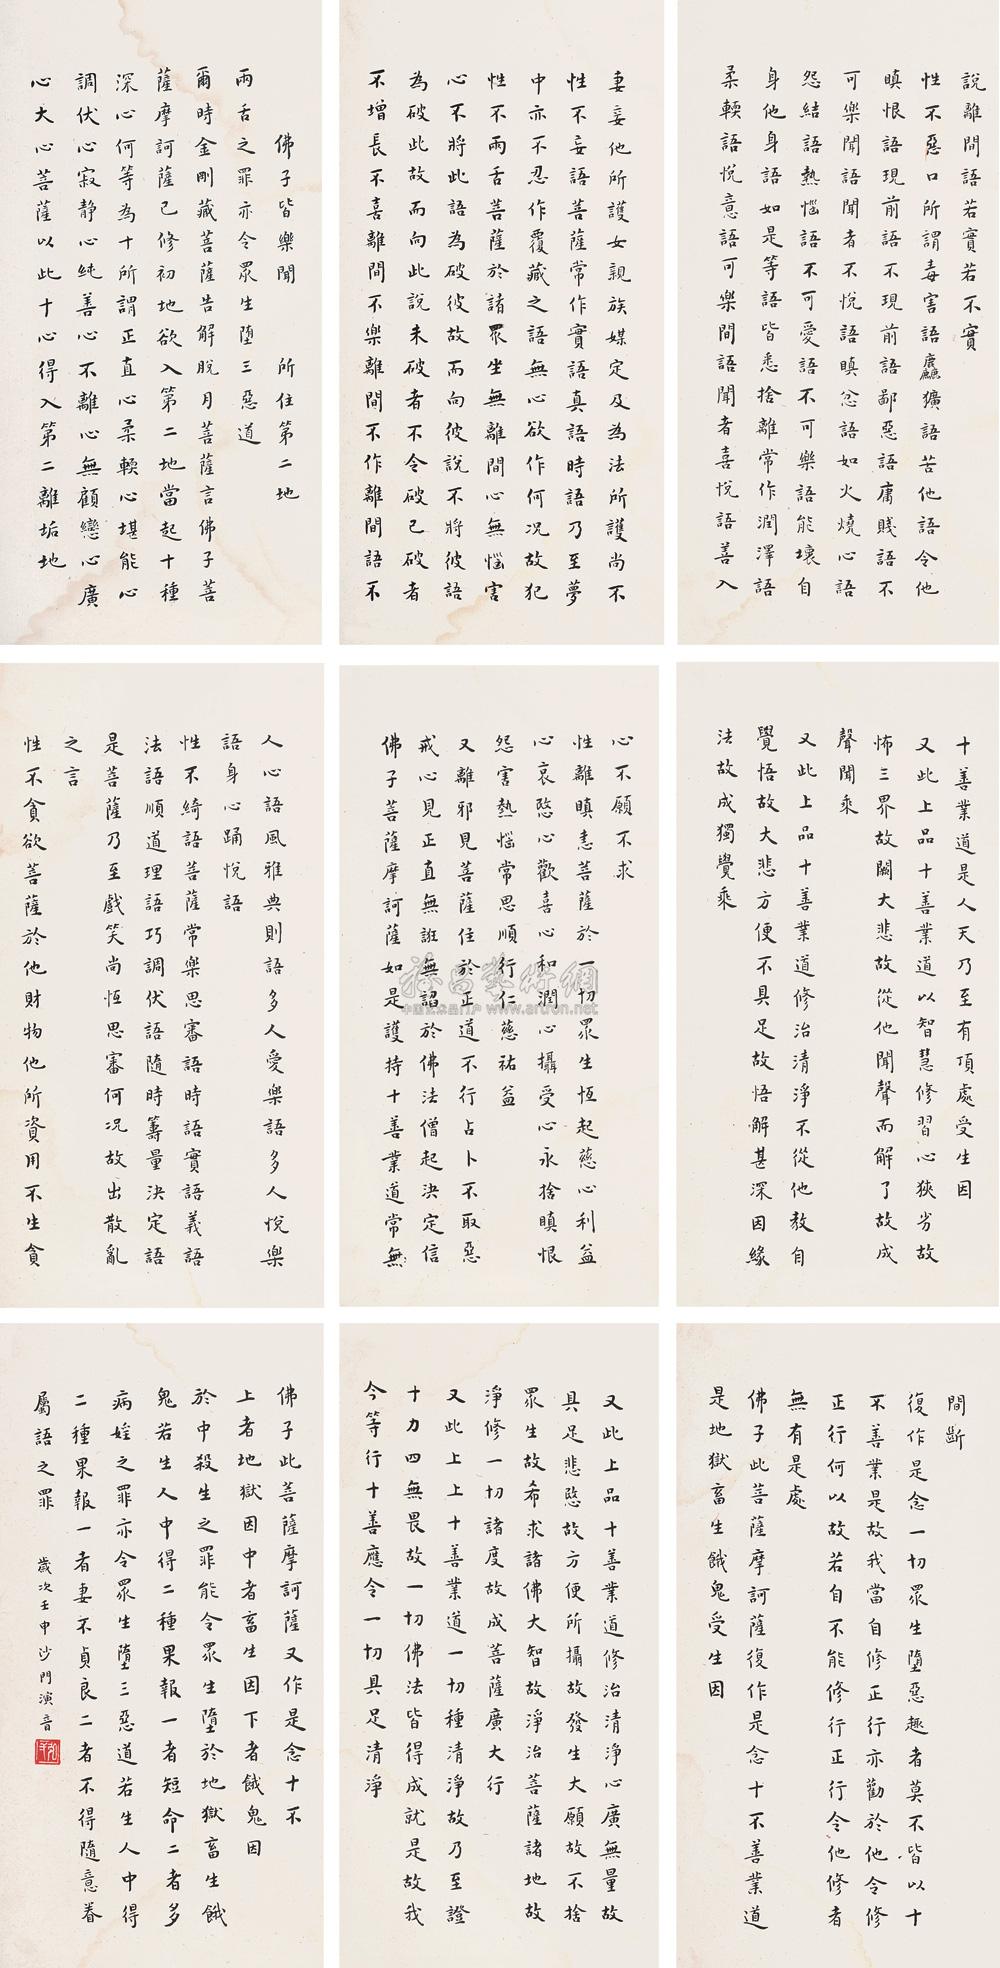 佛子皆樂聞　所住第二地
兩舌之罪亦令眾生墮三惡道
爾時金剛藏菩薩告解脫月菩薩言佛子菩
薩摩訶薩已修初地欲入第二地當起十種
深心何等為十所謂正直心柔輭心堪能心
調伏心寂靜心純善心不離心無顧戀心廣
心大心菩薩以此十心得入第二離垢地
妻妾他所護女親族媒定及為法所護尚不
性不妄語菩薩常作實語真語時語乃至夢
中亦不忍作覆藏之語無心欲作何況故犯
性不兩舌菩薩於諸眾生無離間心無惱害
心不將此語為破彼故而向彼說不將彼語
為破此故而向此說未破者不令破已破者
不增長不喜離間不樂離間不作離間語不
說離間語若實若不實
性不惡口所謂毒害語麤獷語苦他語令他
瞋恨語現前語不現前語鄙惡語庸賤語不
可樂聞語聞者不悅語瞋忿語如火燒心語
怨結語熱惱語不可愛語不可樂語能壞自
身他身語如是等語皆悉捨離常作潤澤語
柔輭語悅意語可樂聞語聞者喜悅語善入
人心語風雅典則語多人愛樂語多人悅樂
語身心踊悅語
性不綺語菩薩常樂思審語時語實語義語
法語順道理語巧調伏語隨時籌量決定語
是菩薩乃至戲笑尚恆思審何況故出散亂
之言
性不貪欲菩薩於他財物他所資用不生貪
心不願不求
性離瞋恚菩薩於一切眾生恆起慈心利益
心哀愍心歡喜心和潤心攝受心永捨瞋恨
怨害熱惱常思順行仁慈祐益
又離邪見菩薩住於正道不行占卜不取惡
戒心見正直無誑無諂於佛法僧起決定信
佛子菩薩摩訶薩如是護持十善業道常無
十善業道是人天乃至有頂處受生因
又此上品十善業道以智慧修習心狹劣故
怖三界故闕大悲故從他聞聲而解了故成
聲聞乘
又此上品十善業道修治清淨不從他教自
覺悟故大悲方便不具足故悟解甚深因緣
法故成獨覺乘
佛子此菩薩摩訶薩又作是念十不
上者地獄因中者畜生因下者餓鬼因
於中殺生之罪能令眾生墮於地獄畜生餓
鬼若生人中得二種果報一者短命二者多
病婬之罪亦令眾生墮三惡道若生人中得
二種果報一者妻不貞良二者不得隨意眷
屬語之罪　歲次壬申沙門演音
又此上品十善業道修治清淨心廣無量故
具足悲愍故方便所攝故發生大願故不捨
眾生故希求諸佛大智故淨治菩薩諸地故
淨修一切諸度故成菩薩廣大行
又此上上十善業道一切種清淨故乃至證
十力四無畏故一切佛法皆得成就是故我
今等行十善應令一切具足清淨
間斷
復作是念一切眾生墮惡趣者莫不皆以十
不善業是故我當自修正行亦勸於他令修
正行何以故若自不能修行正行令他修者
無有是處
佛子此菩薩摩訶薩復作是念十不善業道
是地獄畜生餓鬼受生因